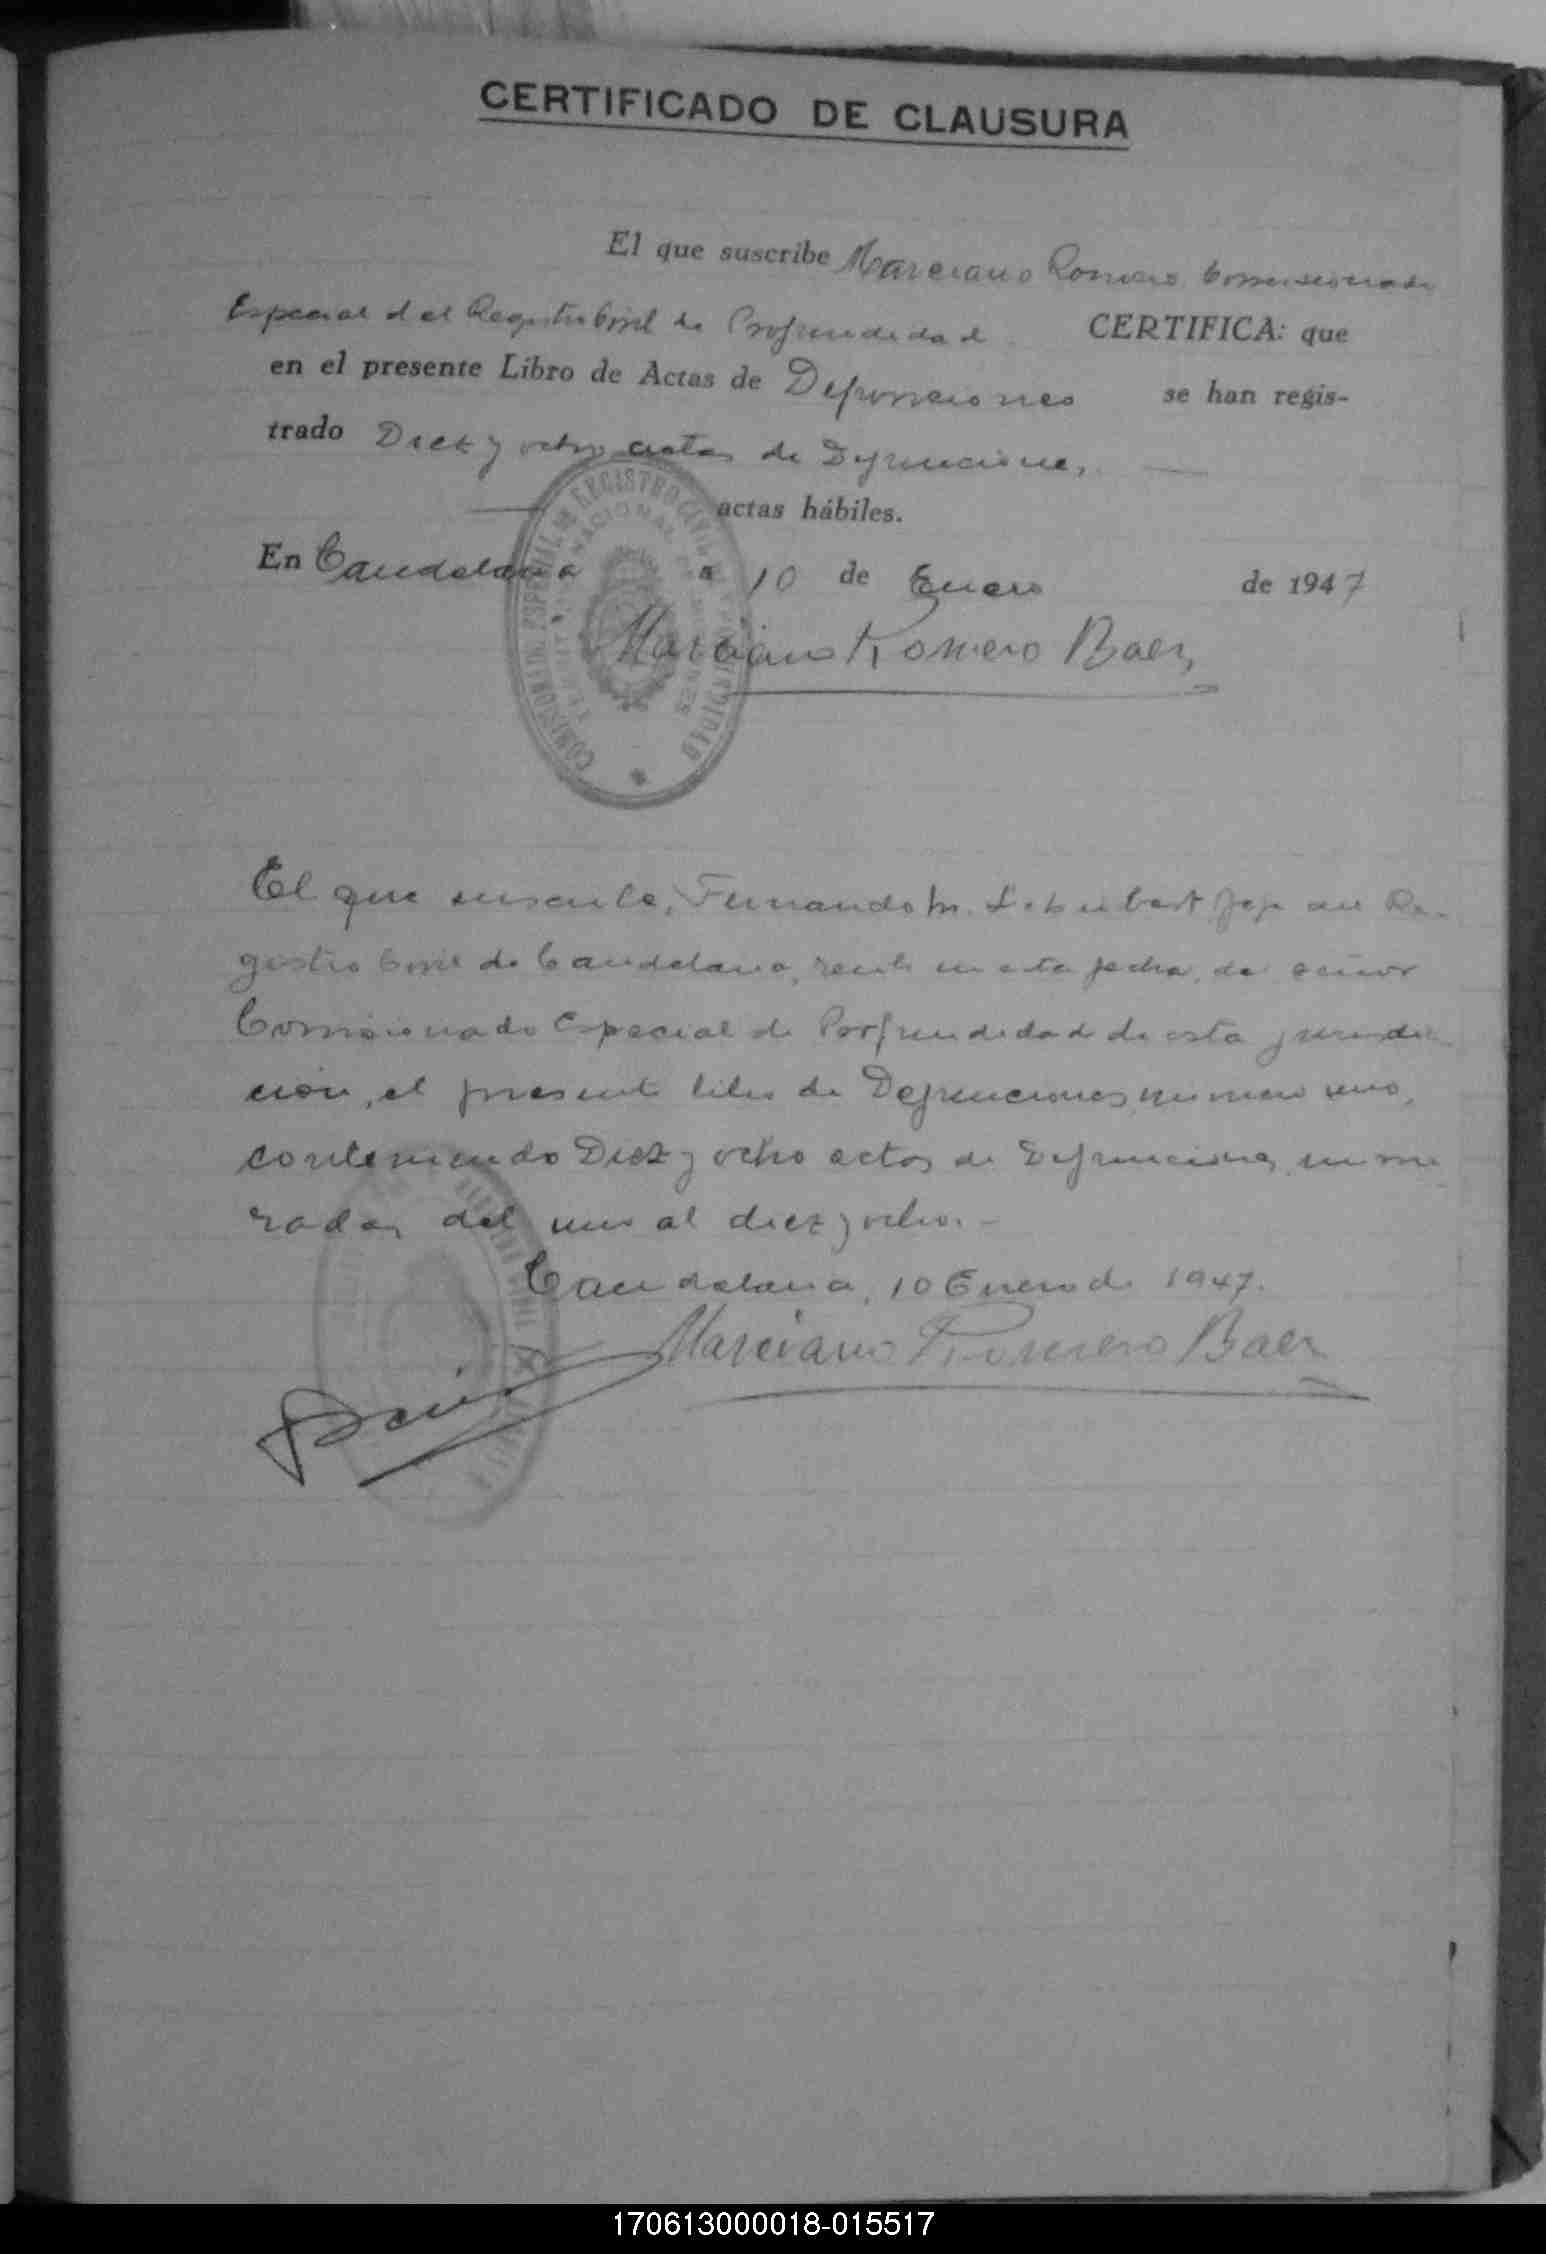 CERTIFICADO DE CLAUSURA
El que suscribe Marciano Romero Comisionado
Especial del Registro Civil de Profundidad. CERTIFICA: que
en el presente Libro de Actas de Defunciones se han regis-
trado Diez y ocho actas de Defunciones,
actas hábiles.
En Candelaria a 10 de Enero de 1947
COMISIONADO ESPECIAL DE REGISTRO CIVIL
PROFUNDIDAD
Marciano Romero Baez
El que suscribe, Fernando M. Jefe del Re-
gistro Civil de Candelaria, recibe en esta fecha, del señor
Comisionado Especial de Porfundidad de esta jurisdic
ción, el presente libro de Defunciones número uno,
conteniendo Diez y ocho actas de Defunciones nume
radas del uno al diez y ocho.-
Candelaria, 10 Enero de 1947.
Marciano Romero Baez
170613000018-015517